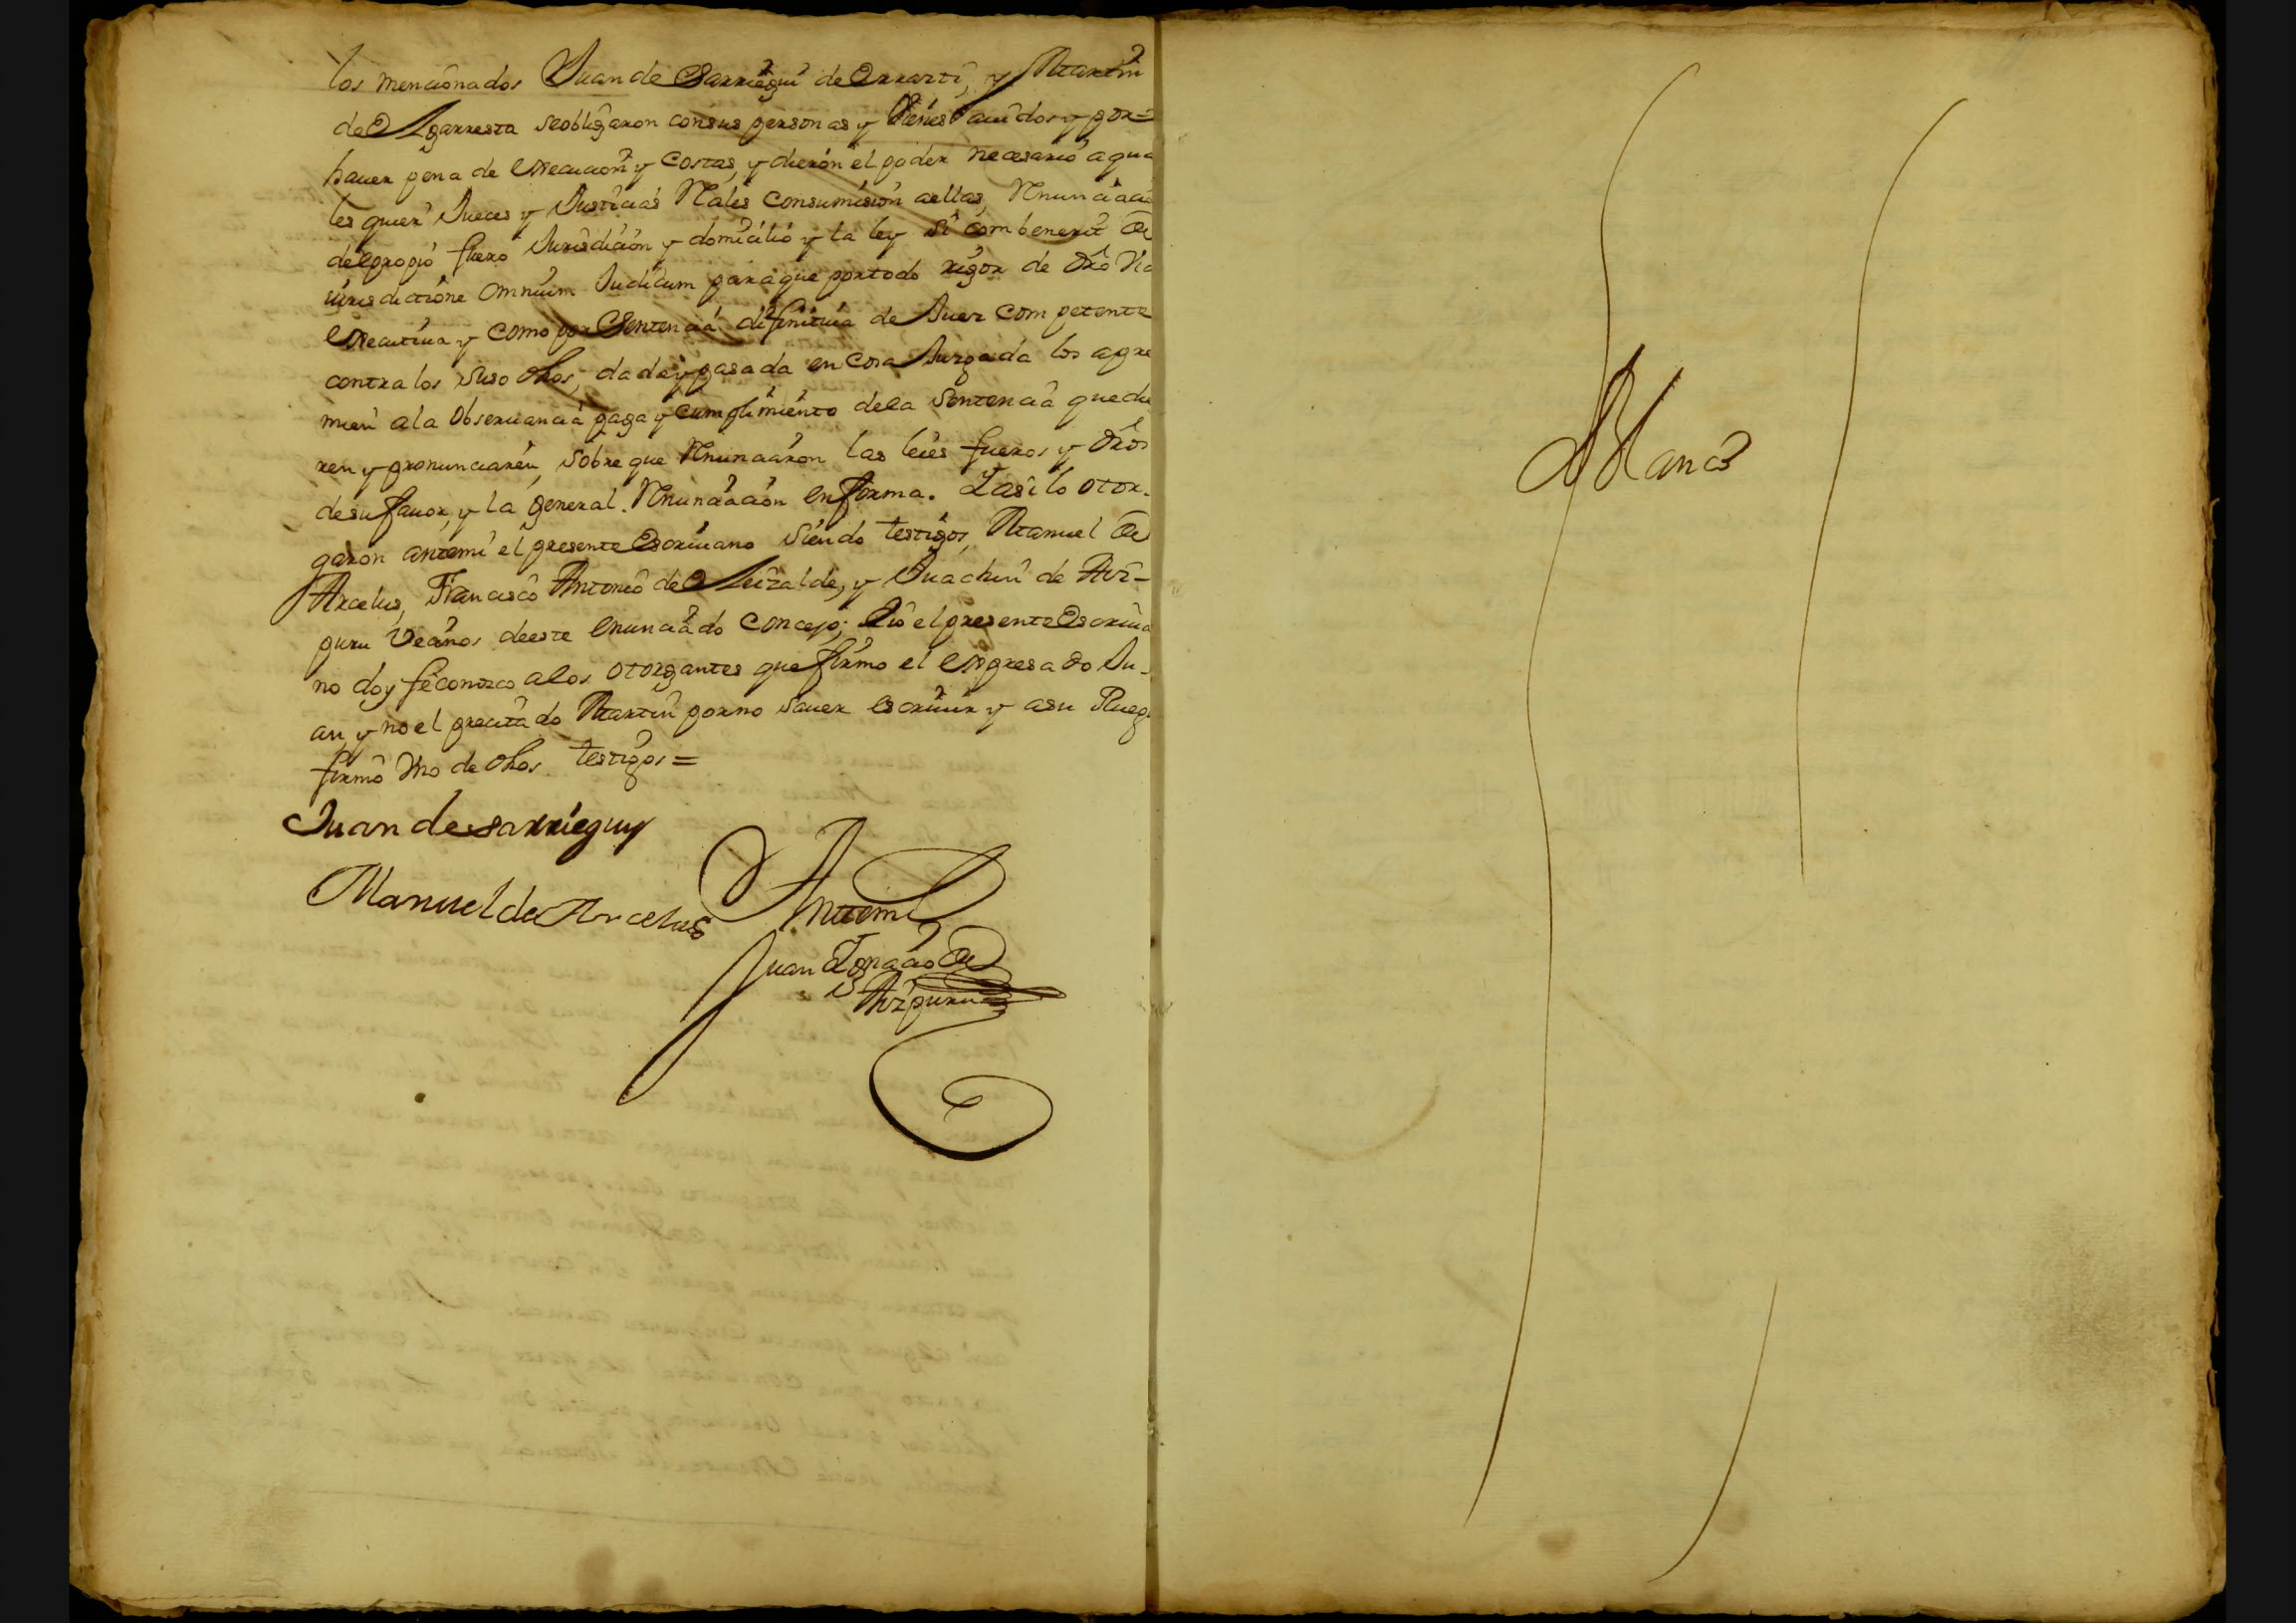 los mencionados Juan de Sarriegui de Orrarti, y Martin
de Lgarresta se obligaron con sus personas y Vienes auidos y por=
hauer pena de execucion y costas, y dieron el poder necesario a qua
les quier Jueces y Justicias Rales con sumision a ellas, Rnunciacio
del propio fuero Jurisdicion y domicilio y la ley si combenerit de
iurisdictione omnium Judicum para que por todo rigor de dro Via
executiva y como por Sentencia difinitiua de Juez competente
contra los suso dhos, dada y pasada en cosa Juzgada los apre
mien a la obseruancia paga y cumplimiento de la Sentencia que die
ren y pronunciaren, sobre que Rnunciaron las leies fueros y dros
de su fauor, y la general Rnunciacion en forma. Y asi lo otor-
garon ante mi el presente Escriuano siendo testigos, Manuel de
Arcelus, Francisco Antonio de Leizalde, y Juachin de Azi-
puru Vecinos de este enunciado concejo; Yo el presente Escriua
no doy fe conozco a los otorgantes que firmo el expresado Ju-
an y no el precitado Martin por no sauer escriuir y a su Ruego
firmo Vno de dhos testigos=
Juan de sarrieguy
Manuel de Arcelus
Ante mi
Juan Ignacio de
Azipuru
Blanco